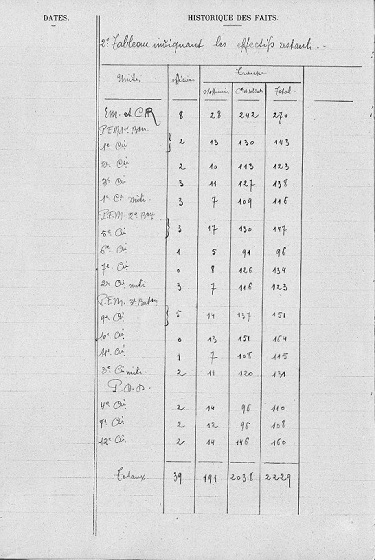 DATES. HISTORIQUE DES FAITS.
2e Tableau indiquant les effectifs restants.
Unités officiers Troupe
S/officiers Cts et Sdts Total
E.M. et C.H.R 8 28 242 270
P.E.M. 1er Bon
1e Cie 2 13 130 143
2e Cie 2 10 113 123
3e Cie 3 11 127 138
1e Cie mitr. 3 7 109 116
P.E.M. 2e Bon
5e Cie 3 17 130 147
6e Cie 1 5 91 96
7e Cie 0 8 126 134
2e Cie mitr 3 7 116 123
P.E.M. 3e Baton
9e Cie 5 14 137 151
10e Cie 0 13 151 164
11e Cie 1 7 108 115
3e Cie mitr. 2 11 120 131
4e Cie 2 14 96 110
8e Cie 2 12 96 108
12e Cie 2 14 146 160
Totaux 39 191 2038 2229